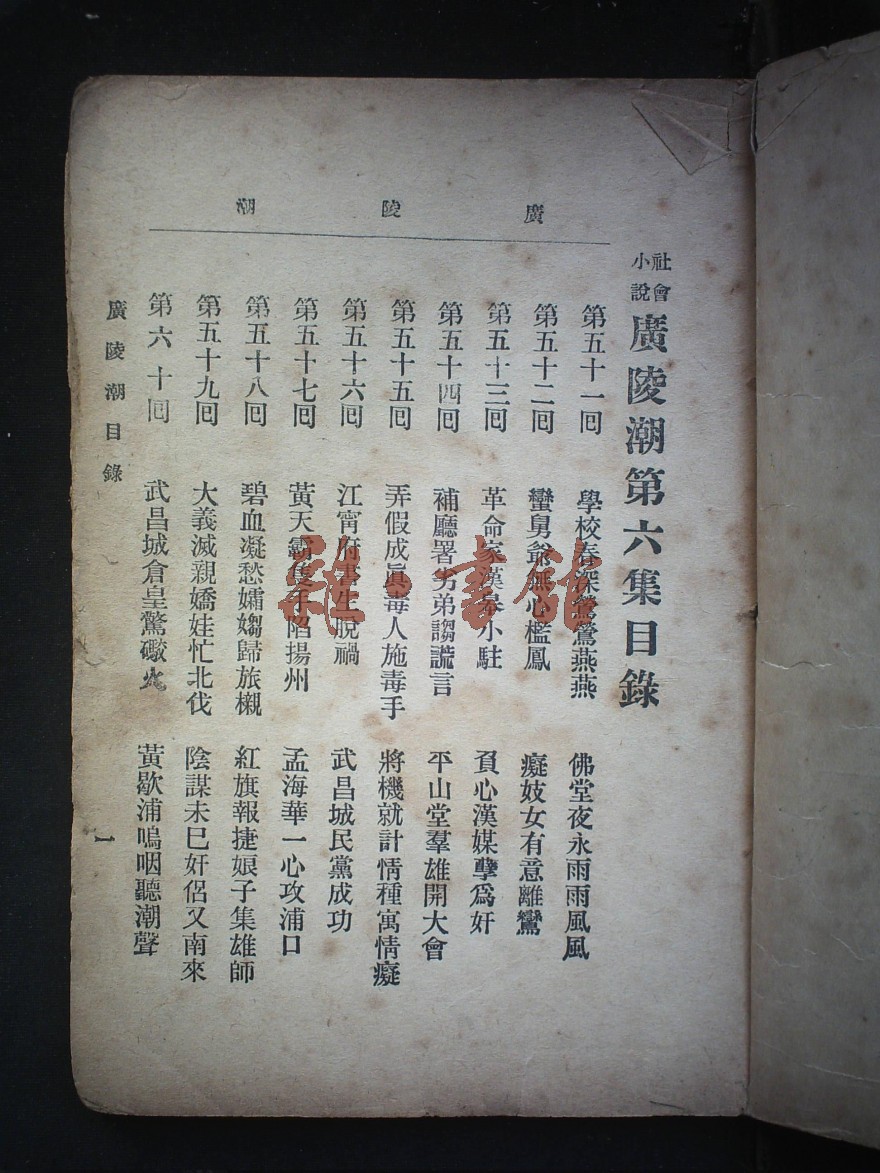 廣陵潮
社會小說 廣陵潮第六集目錄
第五十一回 學校春深鶯鶯燕燕 佛堂夜永雨雨風風
第五十二回 蠻舅爺無心檻鳳 癡妓女有意離鸞
第五十三回 革命家漢皋小駐 負心漢媒孽爲奸
第五十四回 補廳署劣弟謅謊言 平山堂羣雄開大會
第五十五回 弄假成眞毒人施毒手 將機就計情種寓情癡
第五十六回 江甯府書生脫禍 武昌城民黨成功
第五十七回 黃天霸隻手陷揚州 孟海華一心攻浦口
第五十八回 碧血凝愁孀嫋歸旅櫬 紅旗報捷娘子集雄師
第五十九回 大義滅親嬌娃忙北伐 陰謀未已奸侶又南來
第六十回 武昌城倉皇驚礮火 黃歇浦嗚咽聽潮聲
廣陵潮目錄
一